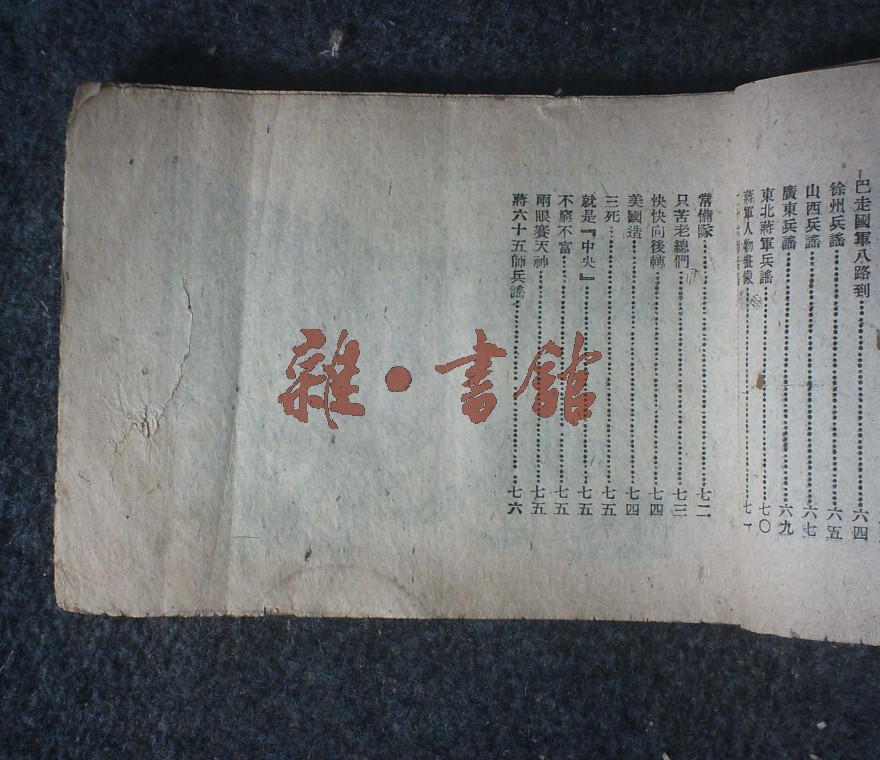 巴走國軍八路到……六四
徐州兵謠……六五
山西兵謠……六七
廣東兵謠……六九
東北蔣軍兵謠……七〇
蔣軍人物畫像……七一
常備隊……七二
只苦老總們……七三
快快向後轉……七四
美國造……七四
三死……七五
就是『中央』……七五
不窮不富……七五
兩眼賽天神……七五
蔣六十五師兵謠……七六
雜·書館